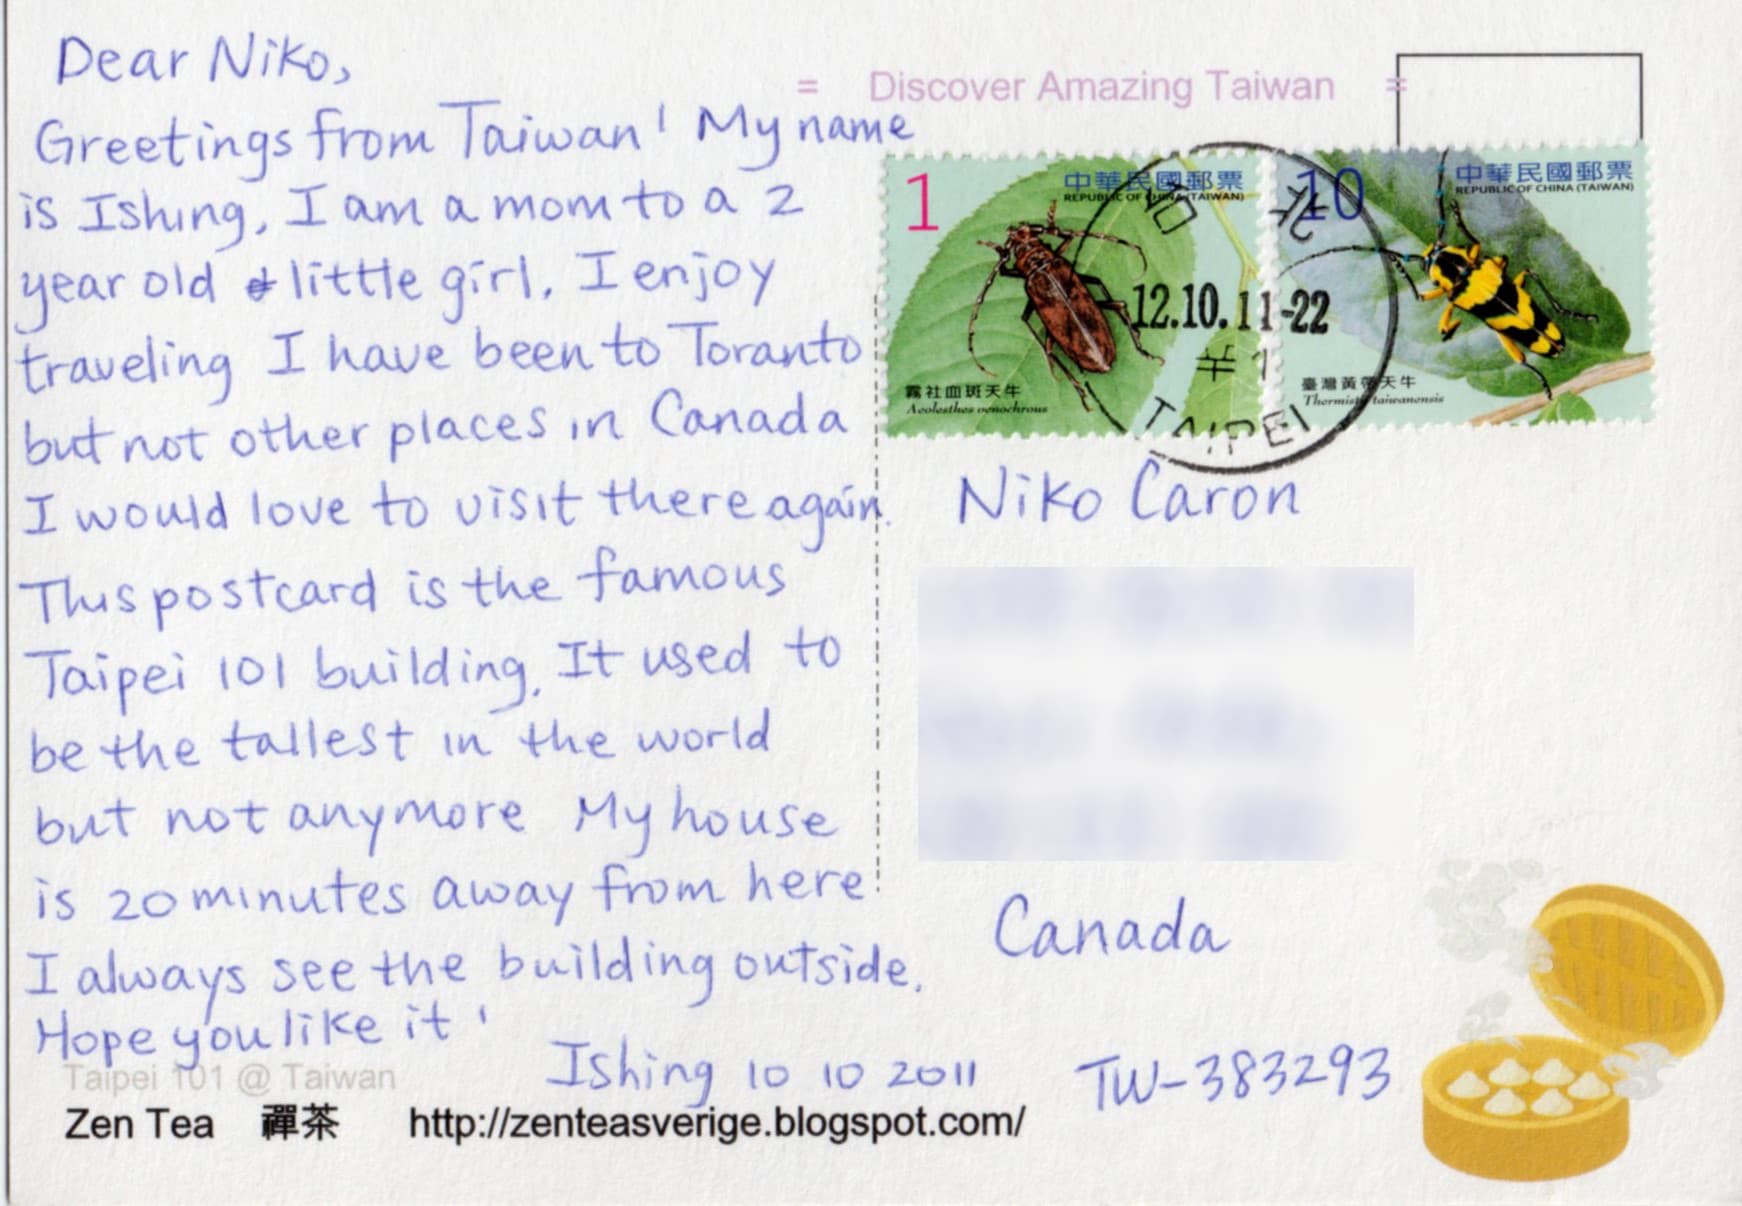 Dear Niko,
Greetings from Taiwan! My name
is Ishing, I am a mom to a 2
year old little girl. I enjoy
traveling I have been to Toranto
but not other places in Canada
I would love to visit there again.
This postcard is the famous
Taipei 101 building. It used to
be the tallest in the world
but not anymore My house
is 20 minutes away from here
I always see the building outside.
Hope you like it!
Ishing 10 10 2011
Taipei 101 @ Taiwan
Zen Tea 禪茶 http://zenteasverige.blogspot.com/
= Discover Amazing Taiwan =
1
中華民國郵票
REPUBLIC OF CHINA (TAIWAN)
霧社血斑天牛
Aeolesthes oenochrous
10
中華民國郵票
REPUBLIC OF CHINA (TAIWAN)
臺灣黃帶天牛
Thermistis taiwanensis
台 北
12.10.11-22
TAIPEI
Niko Caron
Canada
TW-383293